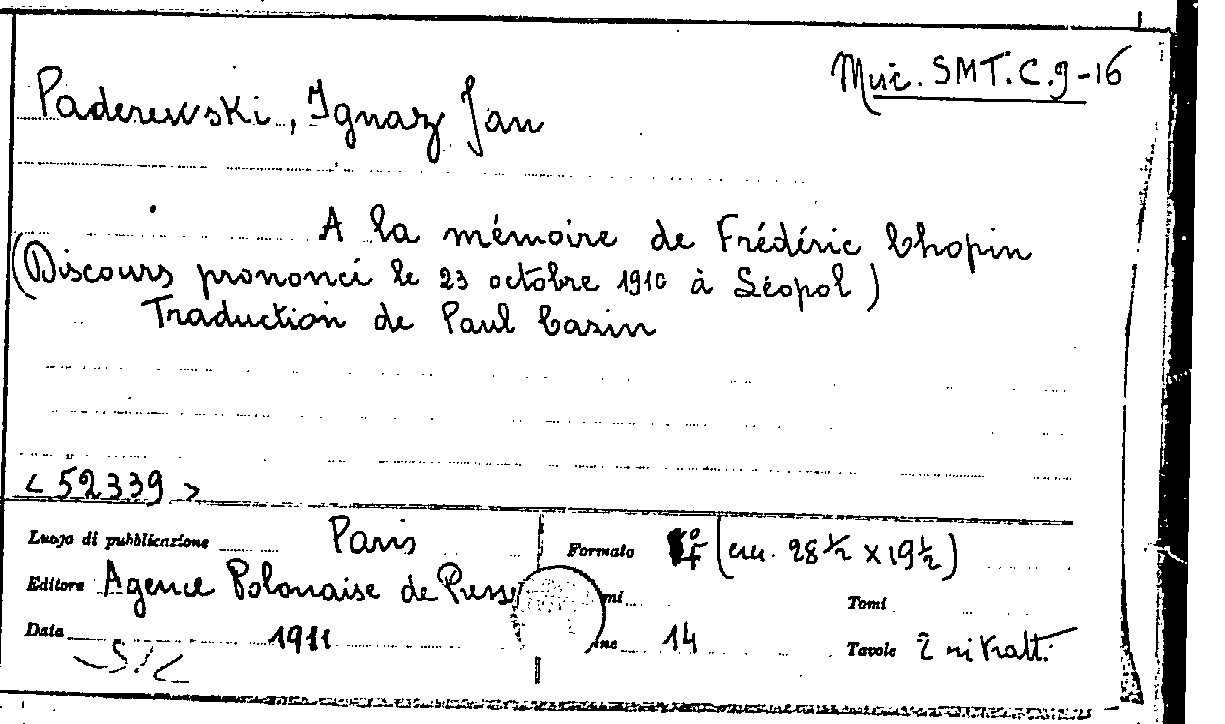 Mus. SMT.C.9-16
Paderewski, Ignaz Jan
A la mémoire de Frédéric Chopin
(Discours prononcé le 23 octobre 1910 à Séopol)
Traduction de Paul Casin
<52339>
Luogo di pubblicazione Paris Formato 4º (cm. 28 ½ x 19 ½)
Editore Agence Polonaise de Presse Tomi
Data 1911 14 Tavole 2 ritratt.